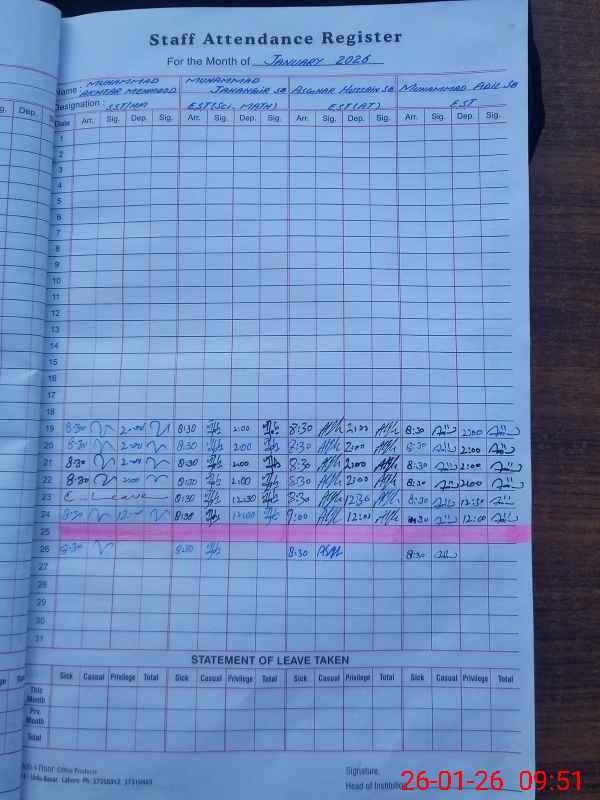 Staff Attendance Register
For the Month of JANUARY 2026
Name: MUHAMMAD AKHTAR MEHMOOD MUHAMMAD JAHANGIR SB ASGHAR HUSSAIN SB MUHAMMAD ADIL SB
Designation: SST/HM EST(SCI, MATH) EST(AT) EST
Date Arr. Sig. Dep. Sig. Arr. Sig. Dep. Sig. Arr. Sig. Dep. Sig. Arr. Sig. Dep. Sig.
1
2
3
4
5
6
7
8
9
10
11
12
13
14
15
16
17
18
19 8:30 2:00 8:30 2:00 8:30 2:00 8:30 2:00
20 8:30 2:00 8:30 2:00 8:30 2:00 8:30 2:00
21 8:30 2:00 8:30 2:00 8:30 2:00 8:30 2:00
22 8:30 2:00 8:30 2:00 8:30 2:00 8:30 2:00
23 C. Leave 8:30 12:30 8:30 12:30 8:30 12:30
24 8:30 12:00 8:30 12:00 9:00 12:00 8:30 12:00
25
26 8:30 8:30 8:30 8:30
27
28
29
30
31
STATEMENT OF LEAVE TAKEN
Sick Casual Privilege Total Sick Casual Privilege Total Sick Casual Privilege Total Sick Casual Privilege Total
This Month
Prv. Month
Total
Signature.
Head of Institution
26-01-26 09:51